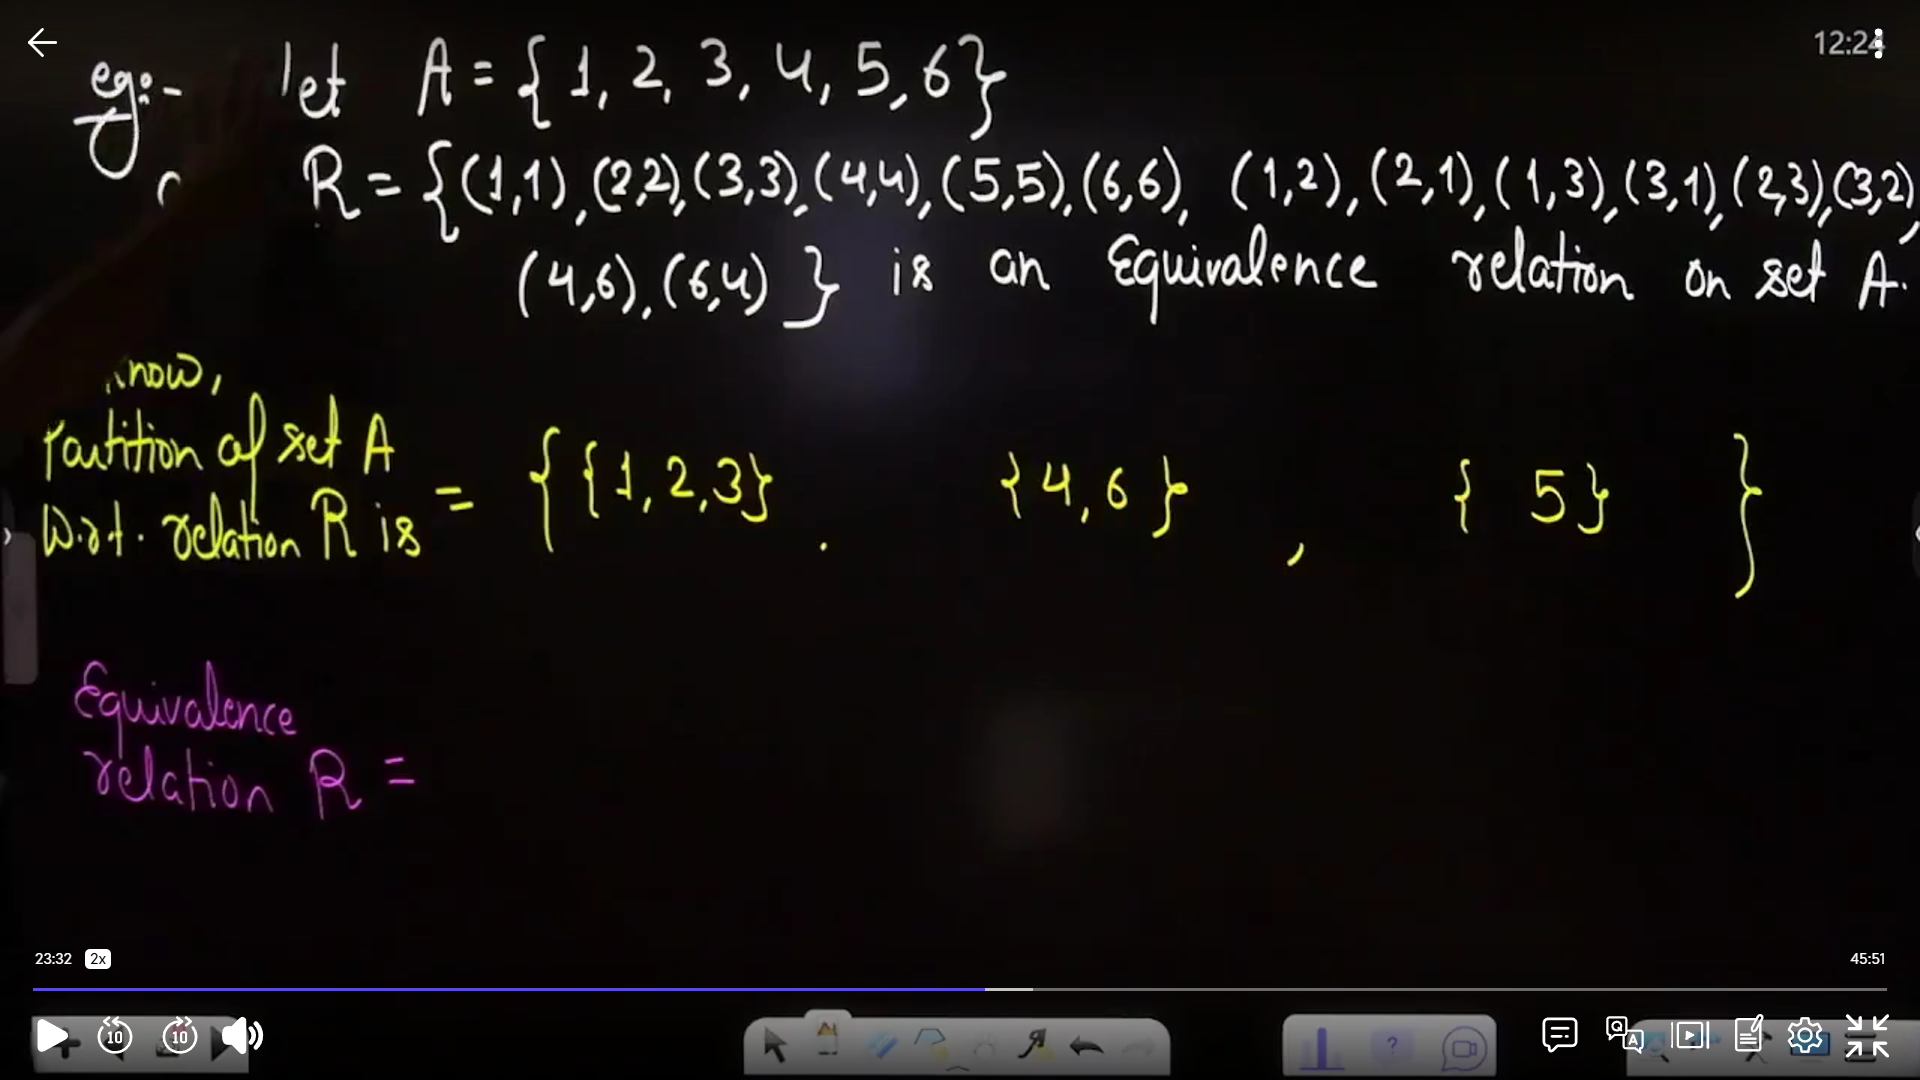 12:24
eg:- let A = { 1, 2, 3, 4, 5, 6}
R = {(1,1), (2,2), (3,3), (4,4), (5,5), (6,6), (1,2), (2,1), (1,3), (3,1), (2,3), (3,2),
(4,6), (6,4) } is an Equivalence relation on set A.
now,
Partition of set A
w.r.t. relation R is = { {1, 2, 3} , {4, 6 } , { 5} }
Equivalence
relation R =
23:32 2x 45:51
10 10
? Q A